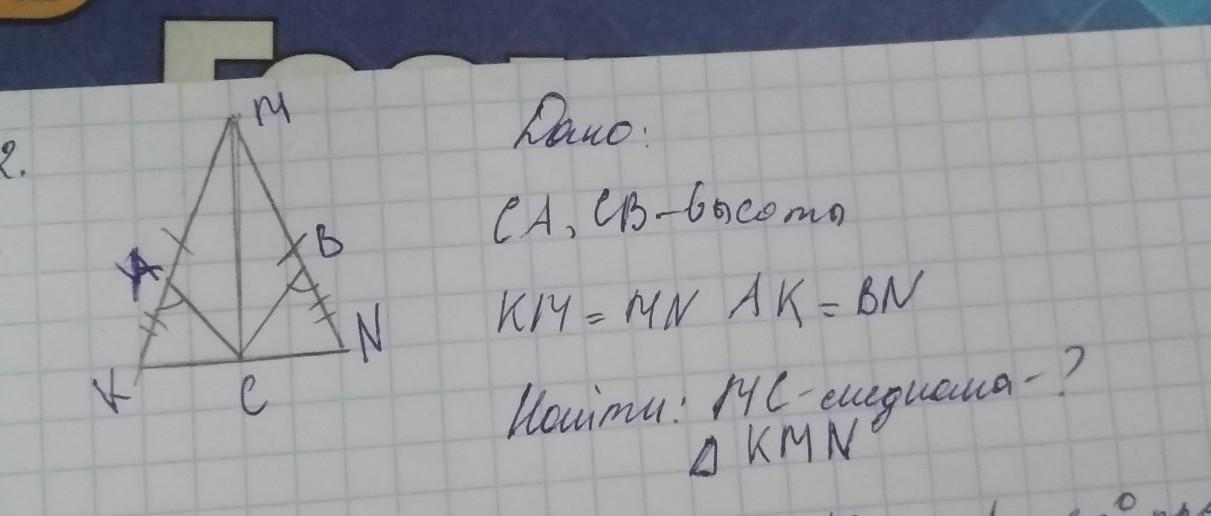 2.
M
A
B
K
C
N
Дано:
CA, CB - высоты
KM = MN AK = BN
Найти: MC - медиана - ?
Δ KMN